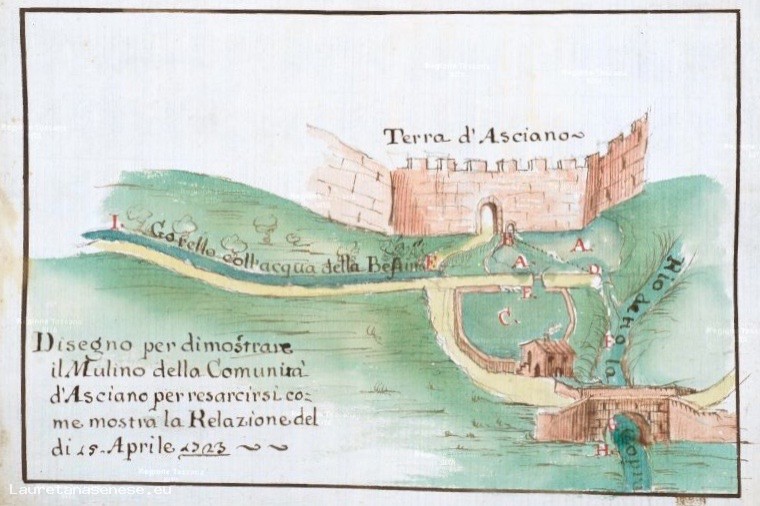 Terra d'Asciano
I.
Gorello coll'acqua della Bestina
E.
B
A.
A.
D.
F.
C.
E
Rio detto la
Copra
G
H.
Disegno per dimostrare
il Mulino della Comunità
d'Asciano per resarcirsi co=
me mostra la Relazione del
di 15. Aprile 1723
Lauretanasenese.eu